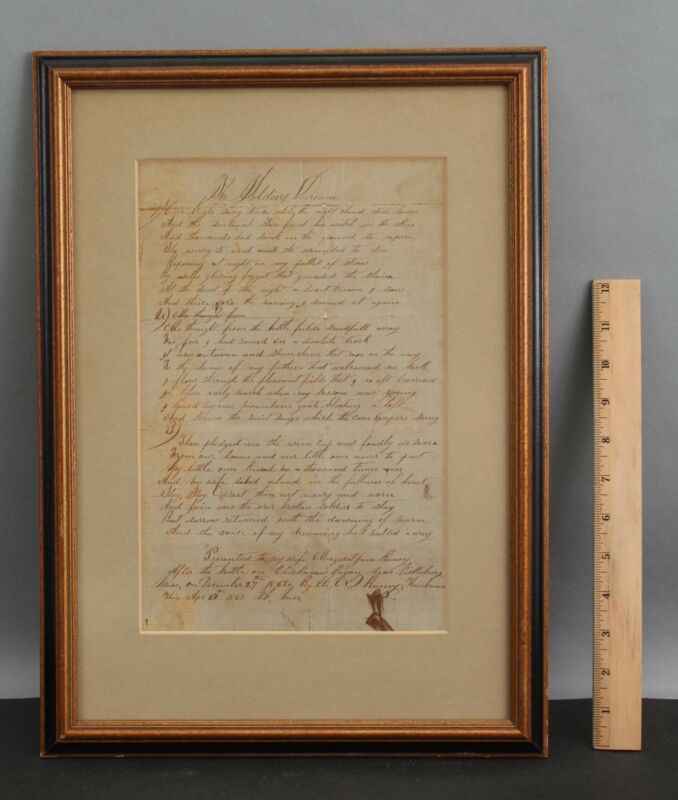 The Soldiers Dream
1) Our bugle sang truce while the night cloud did lower
And the sentinel stars fixed his watch in the skies
And thousands had sunk on the ground to repose
The weary to and the wounded to die
Reposing at night on my pallet of straw
By wolfe glaring faggot that guarded the slain
At the dead of the night a sweet vision I saw
And thrice ere the morning I dreamed it again
2) Me thought from
Me thought from the battle fields dreadfull array
Far far I had roamed on a desolate track
was autumn and Sunshine that rose on the way
To the home of my fathers that welcomed me back
I flew through the pleasant fields that I so oft
In lifes early march when my bosom was young
I heard my own mountain goats bleating a loft
And knew the sweet songs which the corn reapers sung
3)
Then pledged we the wine cup and fondly we swore
From our home and our little ones never to part
My little ones kissed me a thousand times
And my wife sobed aloud in the fullness of heart
Stay, Stay, Rest thou art weary and worn
And fain was the war broken soldier to stay
But sorrow returned with the dawning of morn
And the voice of my dreaming
Presented to my wife Margaret Jane
After the battle on Bayou Near Vicksburg
Miss, on December 29th 1862, By Lt. Husband
This Apr 1863
12
11
10
9
8
7
6
5
4
3
2
1